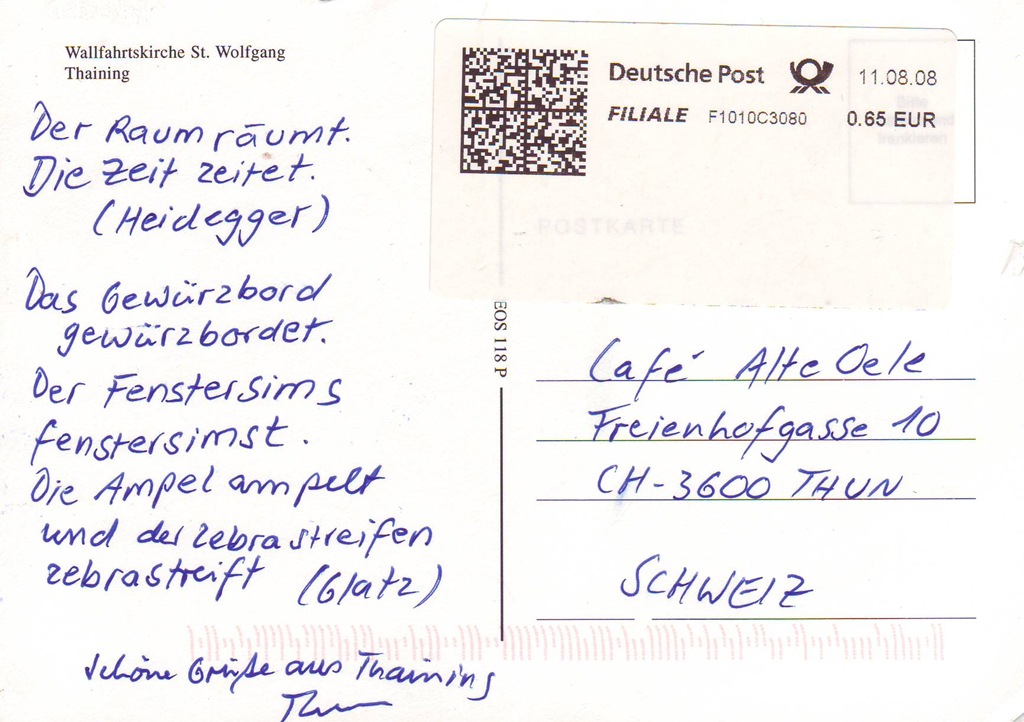 Wallfahrtskirche St. Wolfgang
Thaining
Der Raum räumt.
Die Zeit zeitet.
(Heidegger)
Das Gewürzbord
gewürzbordet.
Der Fenstersims
fenstersimst.
Die Ampel ampelt
und der Zebrastreifen
zebrastreift (Glatz)
Schöne Grüße aus Thaining
Deutsche Post
11.08.08
FILIALE F1010C3080
0.65 EUR
POSTKARTE
EOS 118 P
Café Alte Oele
Freienhofgasse 10
CH-3600 THUN
SCHWEIZ